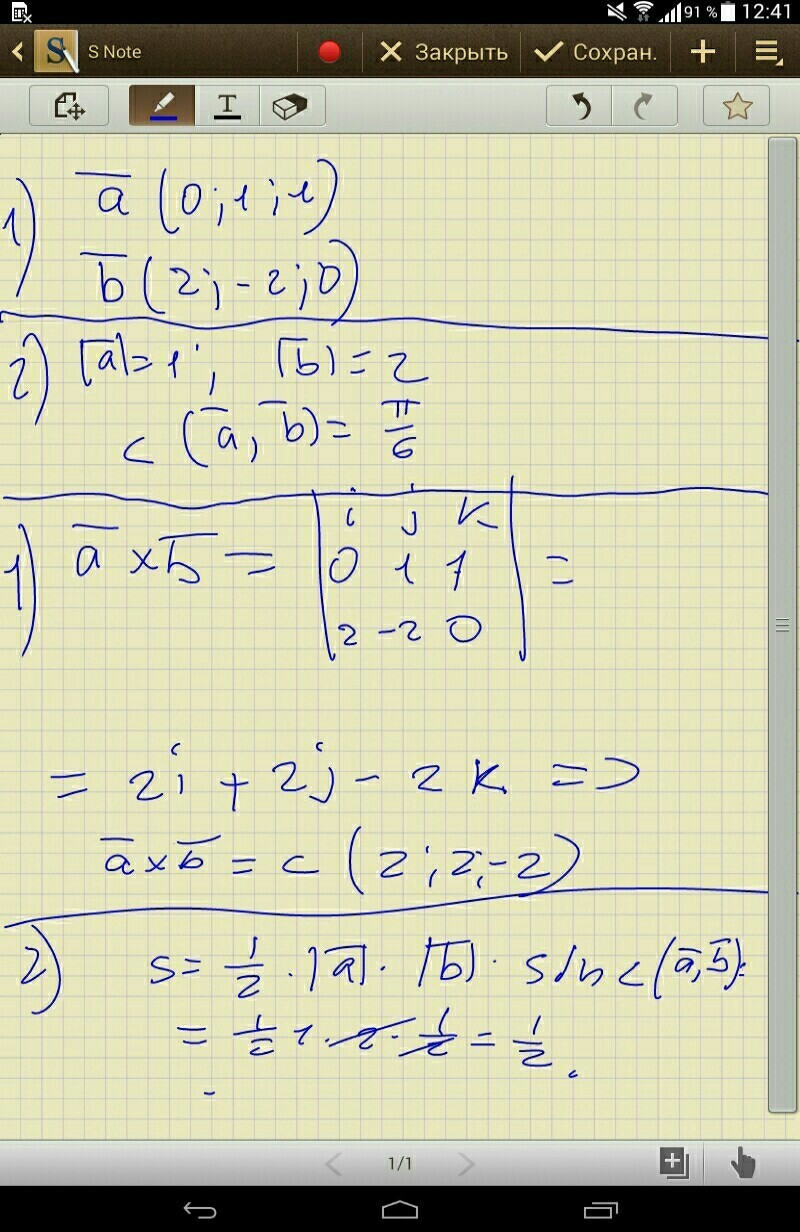 91 % 12:41
S Note Закрыть Сохран.
T
1) a̅ (0;1;1)
b̅ (2;-2;0)
2) |a̅|=1; |b̅|=2
∠(a̅, b̅)= π/6
1) a̅ × b̅ = | i j k
0 1 1 | =
2 -2 0
= 2i + 2j - 2k =>
a̅ × b̅ = c (2;2;-2)
2) S= 1/2 · |a̅| · |b̅| · sin ∠(a̅, b̅)=
= 1/2 1 · 2 · 1/2 = 1/2.
1/1